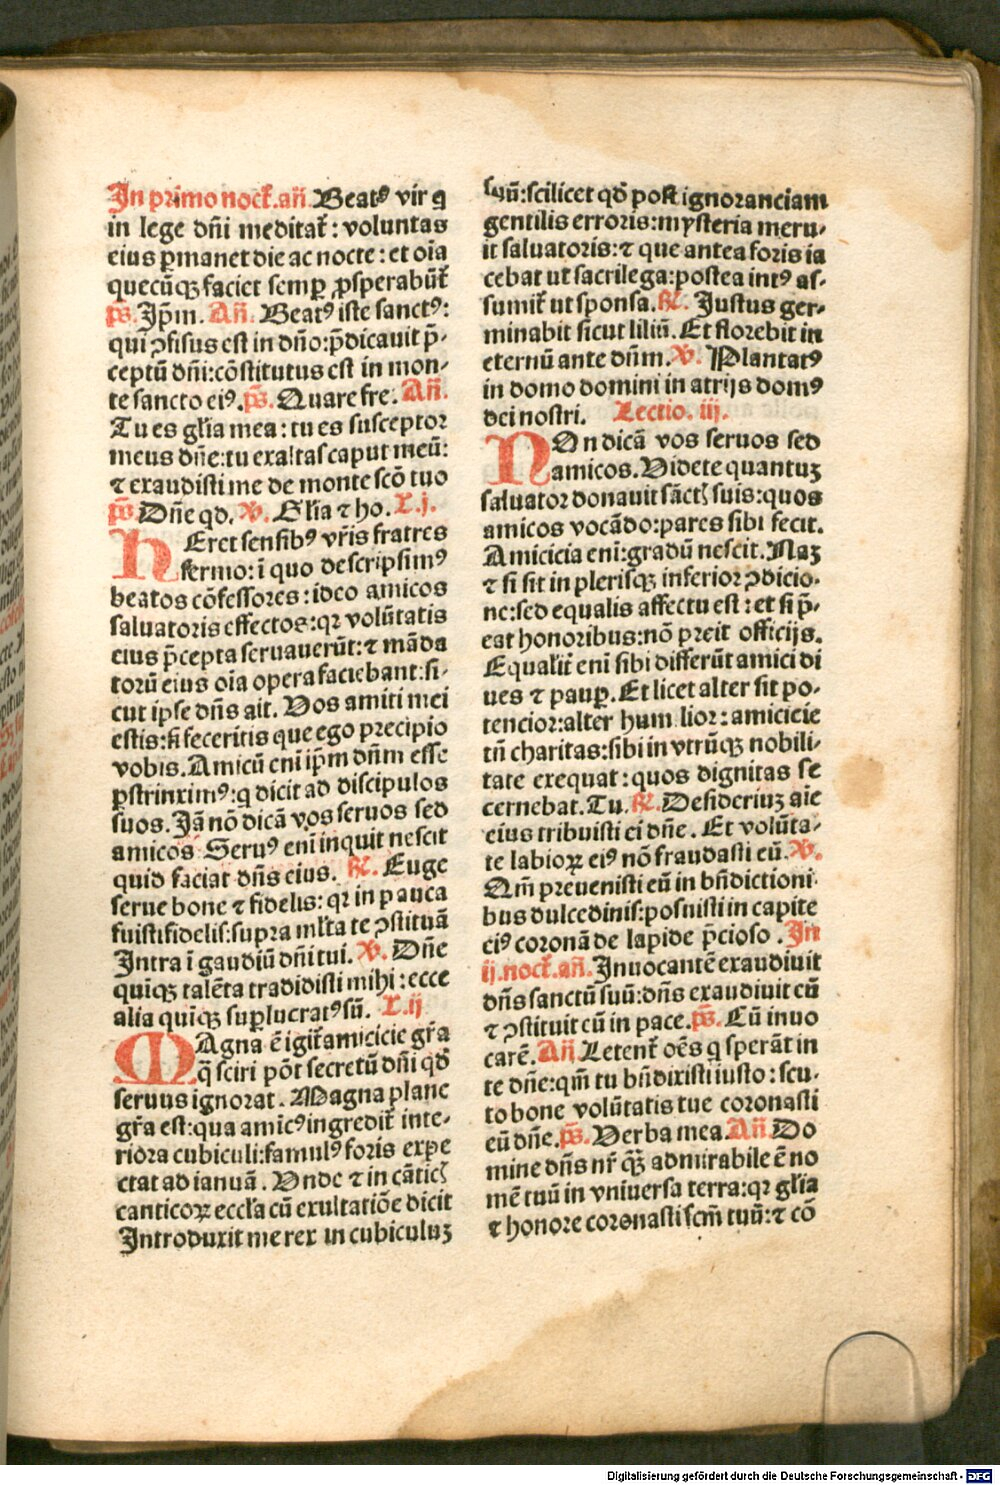 In primo noct̄.an̄. Beatꝰ vir q
in lege dn̄i meditat̄: voluntas
eius ꝑmanet die ac nocte: et oīa
quecūqꝫ faciet semꝑ ꝓsperabūt̄
p̄s. Ip̄m. An̄. Beatꝰ iste sanctꝰ:
qui ꝯfisus est in dn̄o: p̄dicauit p̄-
ceptū dn̄i: cōstitutus est in mon-
te sancto eiꝰ. p̄s. Quare fre. An̄.
Tu es gl̄ia mea: tu es susceptor
meus dn̄e: tu exaltas caput meū:
⁊ exaudisti me de monte scō tuo
p̄s. Dn̄e qd. ℣. Gl̄ia ⁊ ho. L.j.
HEret sensibꝰ vr̄is fratres
sermo: ī quo descripsimꝰ
beatos cōfessores: ideo amicos
saluatoris effectos: qꝛ volūtatis
eius p̄cepta seruauerūt: ⁊ māda
torū eius oīa opera faciebant: si-
cut ipse dn̄s ait. Vos amiti mei
estis: si feceritis que ego precipio
vobis. Amicū enī ip̄m dn̄m esse
ꝑstrinximꝰ: q dicit ad discipulos
suos. Iā nō dicā vos seruos sed
amicos Seruꝰ enī inquit nescit
quid faciat dn̄s eius. ℟. Euge
serue bone ⁊ fidelis: qꝛ in pauca
fuisti fidelis: supra ml̄ta te ꝯstituā
Intra ī gaudiū dn̄i tui. ℣. Dn̄e
quīqꝫ talēta tradidisti mihi: ecce
alia quīqꝫ suꝑlucratꝰ sū. L.ij
MAgna ē igit̄ amicicie gr̄a
q̄ sciri pōt secretū dn̄i qd̄
seruus ignorat. Magna plane
gr̄a est: qua amicꝰ ingredit̄ inte-
riora cubiculi: famulꝰ foris expe
ctat ad ianuā. Vnde ⁊ in cātic̄
canticoꝝ eccl̄a cū exultatiōe dicit
Introduxit me rex in cubiculuꝫ
suū: scilicet qd̄ post ignoranciam
gentilis erroris: mysteria meru-
it saluatoris: ⁊ que antea foris ia
cebat ut sacrilega: postea intꝰ as-
sumit̄ ut sponsa. ℟. Iustus ger-
minabit sicut liliū. Et florebit in
eternū ante dn̄m. ℣. Plantatꝰ
in domo domini in atrijs domꝰ
dei nostri. Lectio. iij.
NOn dicā vos seruos sed
amicos. Videte quantuꝫ
saluator donauit sāct̄ suis: quos
amicos vocādo: pares sibi fecit.
Amicicia enī: gradū nescit. Naꝫ
⁊ si sit in plerisqꝫ inferior ꝯdicio-
ne: sed equalis affectu est: et si p̄-
eat honoribus: nō preit officijs.
Equalit̄ enī sibi differūt amici di
ues ⁊ pauꝑ. Et licet alter sit po-
tencior: alter hum lior: amicicie
tn̄ charitas: sibi in vtrūqꝫ nobili-
tate exequat: quos dignitas se
cernebat. Tu. ℟. Desideriuꝫ aīe
eius tribuisti ei dn̄e. Et volūta-
te labioꝝ eiꝰ nō fraudasti eū. ℣.
Qm̄ preuenisti eū in bn̄dictioni
bus dulcedinis: posuisti in capite
eiꝰ coronā de lapide p̄cioso. In
ij. noct̄. an̄. Inuocantē exaudiuit
dn̄s sanctū suū: dn̄s exaudiuit eū
⁊ ꝯstituit eū in pace. p̄s. Cū inuo
carē. An̄. Letent̄ oēs q sperāt in
te dn̄e: qm̄ tu bn̄dixisti iusto: scu-
to bone volūtatis tue coronasti
eū dn̄e. p̄s. Verba mea. An̄. Do
mine dn̄s nr̄ qꝫ̄ admirabile ē no
mē tuū in vniuersa terra: qꝛ gl̄ia
⁊ honore coronasti scm̄ tuū: ⁊ cō
Digitalisierung gefördert durch die Deutsche Forschungsgemeinschaft - DFG